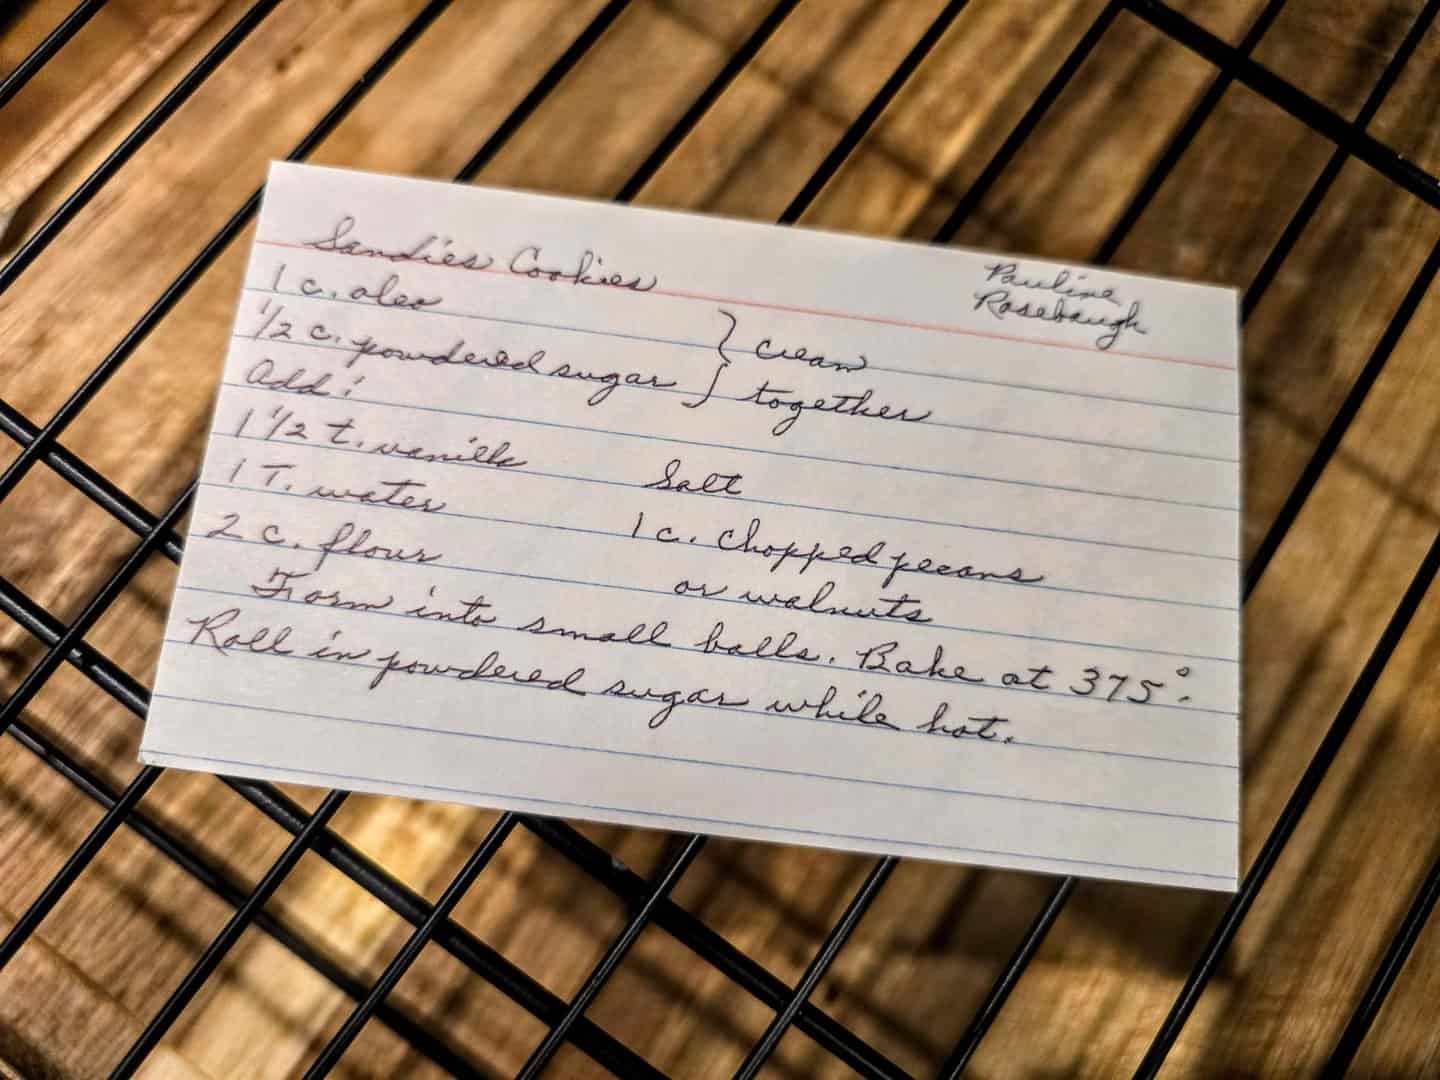 Sandies Cookies
Pauline
Rosebaugh
1 c. oleo
1/2 c. powdered sugar } cream
together
Add:
1 1/2 t. vanilla
Salt
1 T. water
1 c. chopped pecans
2 c. flour
or walnuts
Form into small balls. Bake at 375°.
Roll in powdered sugar while hot.